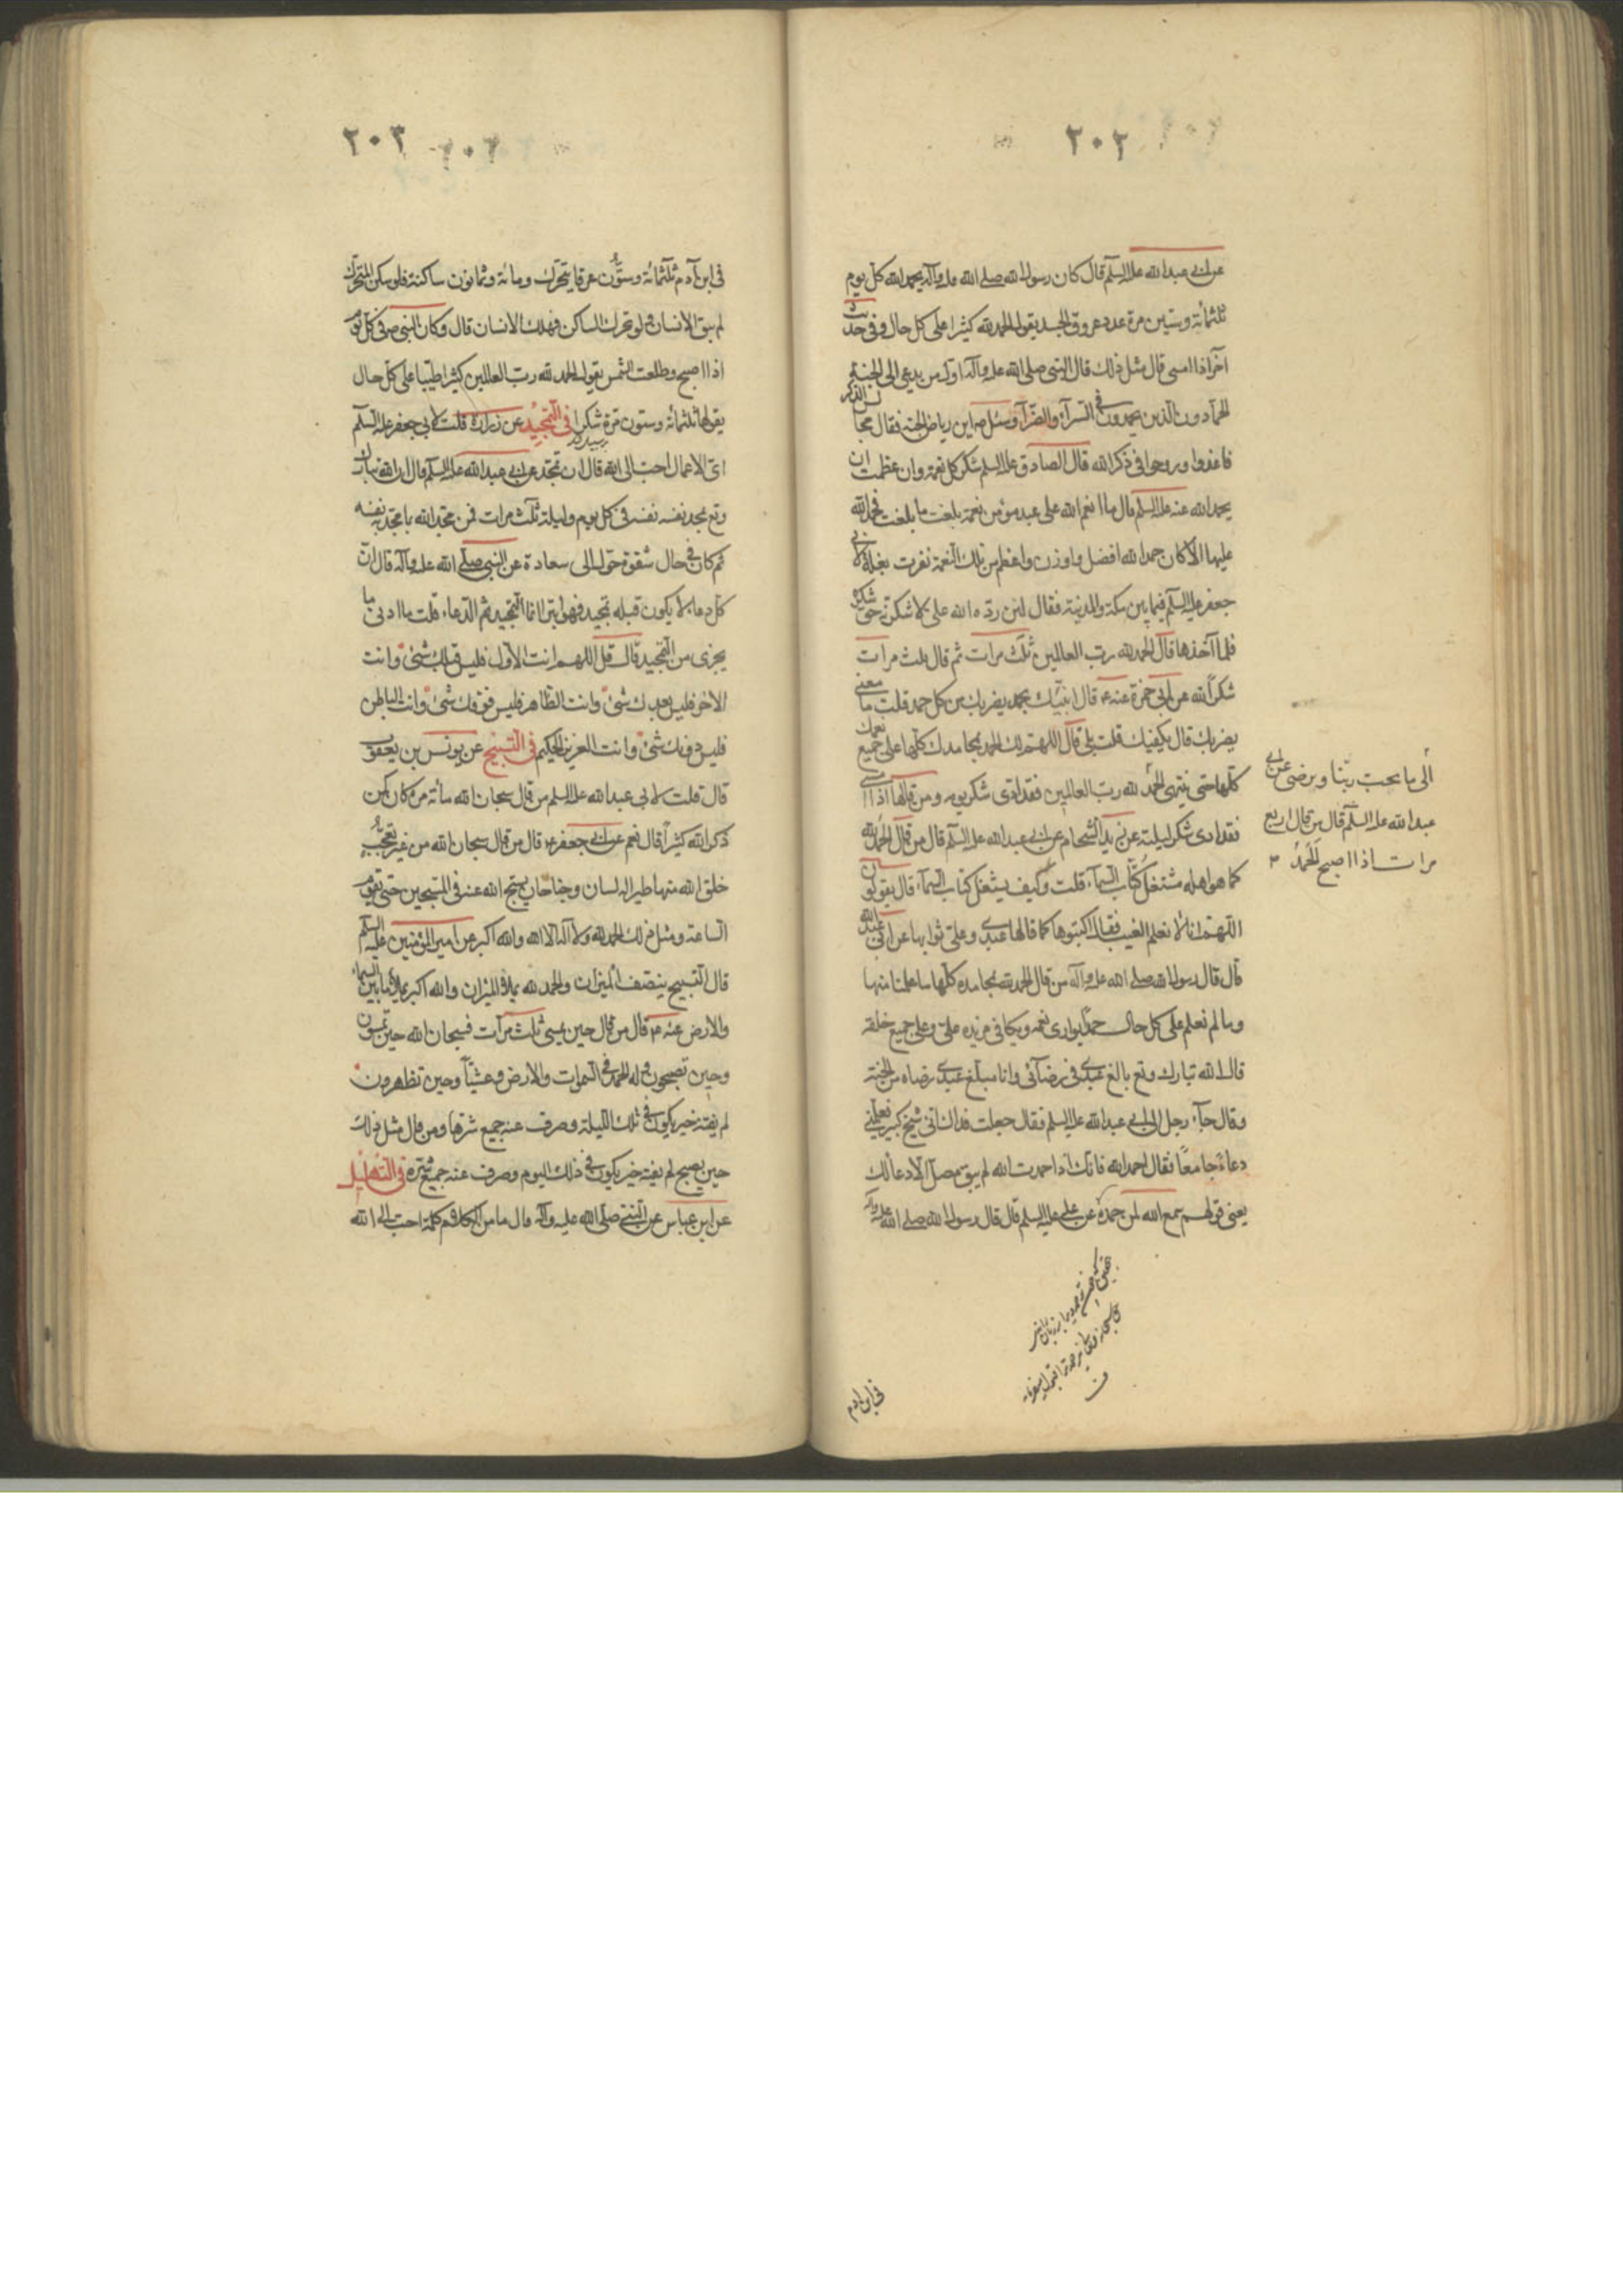 ٢٠٢
عن ابى عبد الله عليه السلم قال كان رسول الله صلى الله عليه وآله يحمد الله كل يوم
ثلثمائة وستين مرة عدد عروق الجسد يقول الحمد لله كثيرا على كل حال وفى حديث
آخر اذا امسى قال مثل ذلك قال النبى صلى الله عليه وآله اول من يدعى الى الجنة
الحمادون الذين يحمدون فى السرآء والضرآء وسئل ص اين رياض الجنة فقال مجالس الذكر
فاغدوا وروحوا فى ذكر الله قال الصادق عليه السلم شكر كل نعمة وان عظمت ان
يحمد الله عنه عليه السلم قال ما انعم الله على عبد مؤمن نعمة بلغت ما بلغت فحمد الله
عليها الا كان حمد الله افضل واوزن واعظم من تلك النعمة نفرت بغلة لابى
جعفر عليه السلم فيما بين مكة والمدينة فقال لئن ردها الله على لاشكرنه حق شكره
فلما اخذها قال الحمد لله رب العالمين ثلث مرات ثم قال ثلث مرات
شكراً لله عن ابى حمزة عنه ع قال انبئك بحمد يضربك من كل حمد قلت ما معنى
يضربك قال يكفيك قلت بلى قال اللهم لك الحمد بمحامدك كلها على جميع نعمك
كلها حتى ينتهى الحمد
الى ما يحب ربنا ويرضى عن ابى
عبد الله عليه السلم قال من قال اربع
مرات اذا اصبح الحمد
لله رب العالمين فقد ادى شكر يومه ومن قالها اذا امسى
فقد ادى شكر ليلته عن زيد الشحام عن ابى عبد الله عليه السلم قال من قال الحمد لله
كما هو اهله شغل كتاب السمآء قلت وكيف يشغل كتاب السمآء قال يقولون
اللهم انا لا نعلم الغيب فقال اكتبوها كما قالها عبدى وعلى ثوابها عن ابى عبد الله
قال قال رسول الله صلى الله عليه وآله من قال الحمد لله بمحامده كلها ما علمنا منها
وما لم نعلم على كل حال حمدا يوازى نعمه ويكافى مزيده على وعلى جميع خلقه
قال الله تبارك وتع بالغ عبدى فى رضآئى وانا مبلغ عبدى رضاه من الجنة
وقال جآء رجل الى ابى عبد الله عليه السلم فقال جعلت فداك انى شيخ كبير فعلمنى
دعاءً جامعاً فقال احمد الله فانك اذا حمدت الله لم يبق مصل الا دعا لك
يعنى قولهم سمع الله لمن حمده عن على عليه السلم قال قال رسول الله صلى الله عليه وآله
فى ابن ادم
٢٠٣
فى ابن آدم ثلثمائة وستون عرقا يتحرك ومائة وثمانون ساكنة فلو سكن المتحرك
لم يبق الانسان ولو تحرك الساكن فهلك الانسان قال وكان النبى ص فى كل يوم
اذا اصبح وطلعت الشمس يقول الحمد لله رب العالمين كثيرا طيبا على كل حال
يقولها ثلثمائة وستون مرة شكرا فى التمجيد عن زرارة قلت لابى جعفر عليه السلم
اى الاعمال احب الى الله قال ان تمجد عن ابى عبد الله عليه السلم قال ان الله تبارك
وتع يمجد نفسه فى كل يوم وليلة ثلث مرات فمن مجد الله بما مجد به نفسه
ثم كان فى حال شقوة حول الى سعادة عن النبى صلى الله عليه وآله قال ان
كل دعاء لا يكون قبله تمجيد فهو ابتر انما التمجيد ثم الدعاء قلت ما ادنى ما
يجزى من التمجيد قال قل اللهم انت الاول فليس قبلك شئ وانت
الاخر فليس بعدك شئ وانت الظاهر فليس فوقك شئ وانت الباطن
فليس دونك شئ وانت العزيز الحكيم فى التسبيح عن يونس بن يعقوب
قال قلت لابى عبد الله عليه السلم من قال سبحان الله مائة مرة كان ممن
ذكر الله كثيراً قال نعم عن ابى جعفر ع قال من قال سبحان الله من غير تعجب
خلق الله منها طيرا له لسان وجناحان يسبح الله عنه فى المسبحين حتى تقوم
الساعة ومثل ذلك الحمد لله ولا اله الا الله والله اكبر عن امير المؤمنين عليه السلم
قال التسبيح ينصف الميزان والحمد لله يملاء الميزان والله اكبر يملاء ما بين السماء
والارض عنه ع قال من قال حين يمسى ثلث مرآت فسبحان الله حين تمسون
وحين تصبحون وله الحمد فى السموات والارض وعشيا وحين تظهرون
لم يفته خير يكون فى تلك الليلة وصرف عنه جميع شرها ومن قال مثل ذلك
حين يصبح لم يفته خير يكون فى ذلك اليوم وصرف عنه جميع شره فى التهليل
عن ابن عباس عن النبى صلى الله عليه وآله قال ما من الكلام كلمة احب الى الله